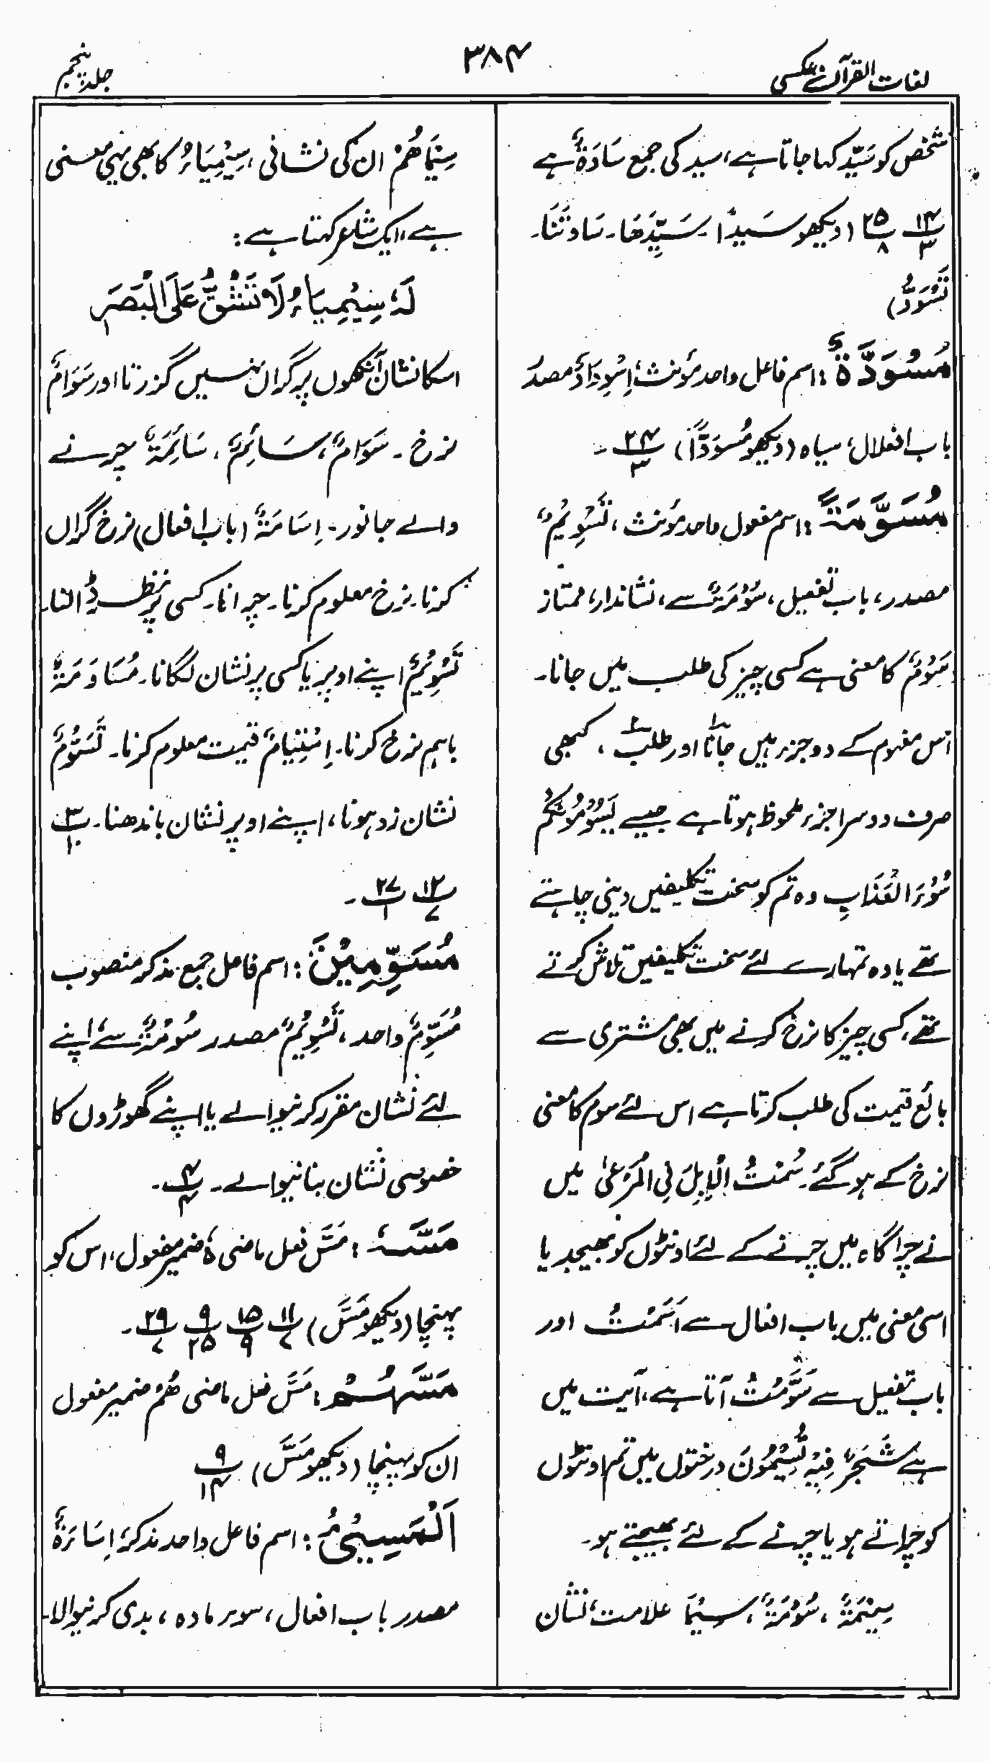 لغات القرآن عکسی
۳۸۴
جلد پنجم
شخص کو سَیِّد کہا جاتا ہے، سید کی جمع سَادَۃٌ ہے
۱۳/۳ ۲۵/۸ (دیکھو سَیِّدًا ۔ سَیِّدَھَا ۔ سَادَتَنَا ۔
تَسْوَدُّ)
مُسْوَدَّۃٌ: اسم فاعل واحد مؤنث، اِسْوِدَادٌ مصدر
باب افعلال، سیاہ (دیکھو مُسْوَدًّا) ۲۴/۳ ۔
مُسَوَّمَۃً: اسم مفعول واحد مؤنث، تَسْوِیْمٌ
مصدر، باب تفعیل، سُوْمَۃٌ سے، نشاندار، ممتاز
سَوْمٌ کا معنی ہے کسی چیز کی طلب میں جانا۔
اس مفہوم کے دو جزء ہیں جانا اور طلب، کبھی
صرف دوسرا جزء ملحوظ ہوتا ہے جیسے یَسُوْمُوْنَکُمْ
سُوْءَ الْعَذَابِ وہ تم کو سخت تکلیفیں دینی چاہتے
تھے یا وہ تمہارے لئے سخت تکلیفیں تلاش کرتے
تھے، کسی چیز کا نرخ کرنے میں بھی مشتری سے
بائع قیمت کی طلب کرتا ہے اس لئے سوم کا معنی
نرخ کے ہو گئے۔ سُمْتُ الْاِبِلَ فِی الْمَرْعٰی میں
نے چراگاہ میں چرنے کے لئے اونٹوں کو بھیجدیا
اسی معنی میں باب افعال سے اَسَمْتُ اور
باب تفعیل سے سَوَّمْتُ آتا ہے، آیت میں
ہے شَجَرٌ فِیْہِ تُسِیْمُوْنَ درختوں میں تم اونٹوں
کو چراتے ہو یا چرنے کے لئے بھیجتے ہو۔
سِیْمَۃٌ، سُوْمَۃٌ، سِیْمَا علامت، نشان
سِیْمَاھُمْ ان کی نشانی، سِیْمِیَاءُ کا بھی یہی معنی
ہے، ایک شاعر کہتا ہے:
لَہٗ سِیْمِیَاءُ لَا تَشُقُّ عَلَی الْبَصَرِ
اسکا نشان آنکھوں پر گراں نہیں گزرتا اور سَوَامٌ
نرخ ۔ سَوَامٌ، سَائِمٌ، سَائِمَۃٌ چرنے
والے جانور۔ اِسَامَۃٌ (باب افعال) نرخ گراں
کرنا۔ نرخ معلوم کرنا۔ چرانا۔ کسی پر نظر ڈالنا۔
تَسْوِیْمٌ اپنے اوپر یا کسی پر نشان لگانا۔ مُسَاوَمَۃٌ
باہم نرخ کرنا۔ اِسْتِیَامٌ قیمت معلوم کرنا۔ تَسَوُّمٌ
نشان زد ہونا، اپنے اوپر نشان باندھنا۔ ۳/۱۰
۱۲/۷ ۲۷/۱ ۔
مُسَوِّمِیْنَ: اسم فاعل جمع مذکر منصوب
مُسَوِّمٌ واحد، تَسْوِیْمٌ مصدر سُوْمَۃٌ سے، اپنے
لئے نشان مقرر کرنیوالے یا اپنے گھوڑوں کا
خصوصی نشان بنانیوالے۔ ۴/۴ ۔
مَسَّہٗ: مَسَّ فعل ماضی ہٗ ضمیر مفعول، اس کو
پہنچا (دیکھو مَسَّ) ۱۱/۷ ۱۵/۹ ۹/۲۵ ۲۹/۷ ۔
مَسَّہُمْ: مَسَّ فعل ماضی ھُمْ ضمیر مفعول
ان کو پہنچا (دیکھو مَسَّ) ۹/۱۴
اَلْمُسِیْءُ: اسم فاعل واحد مذکر، اِسَاءَۃٌ
مصدر باب افعال، سوء مادہ، بدی کرنیوالا۔